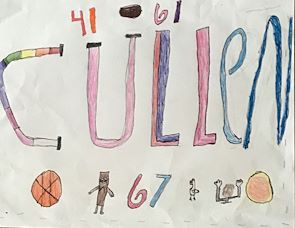 41 61
CULLeN
67